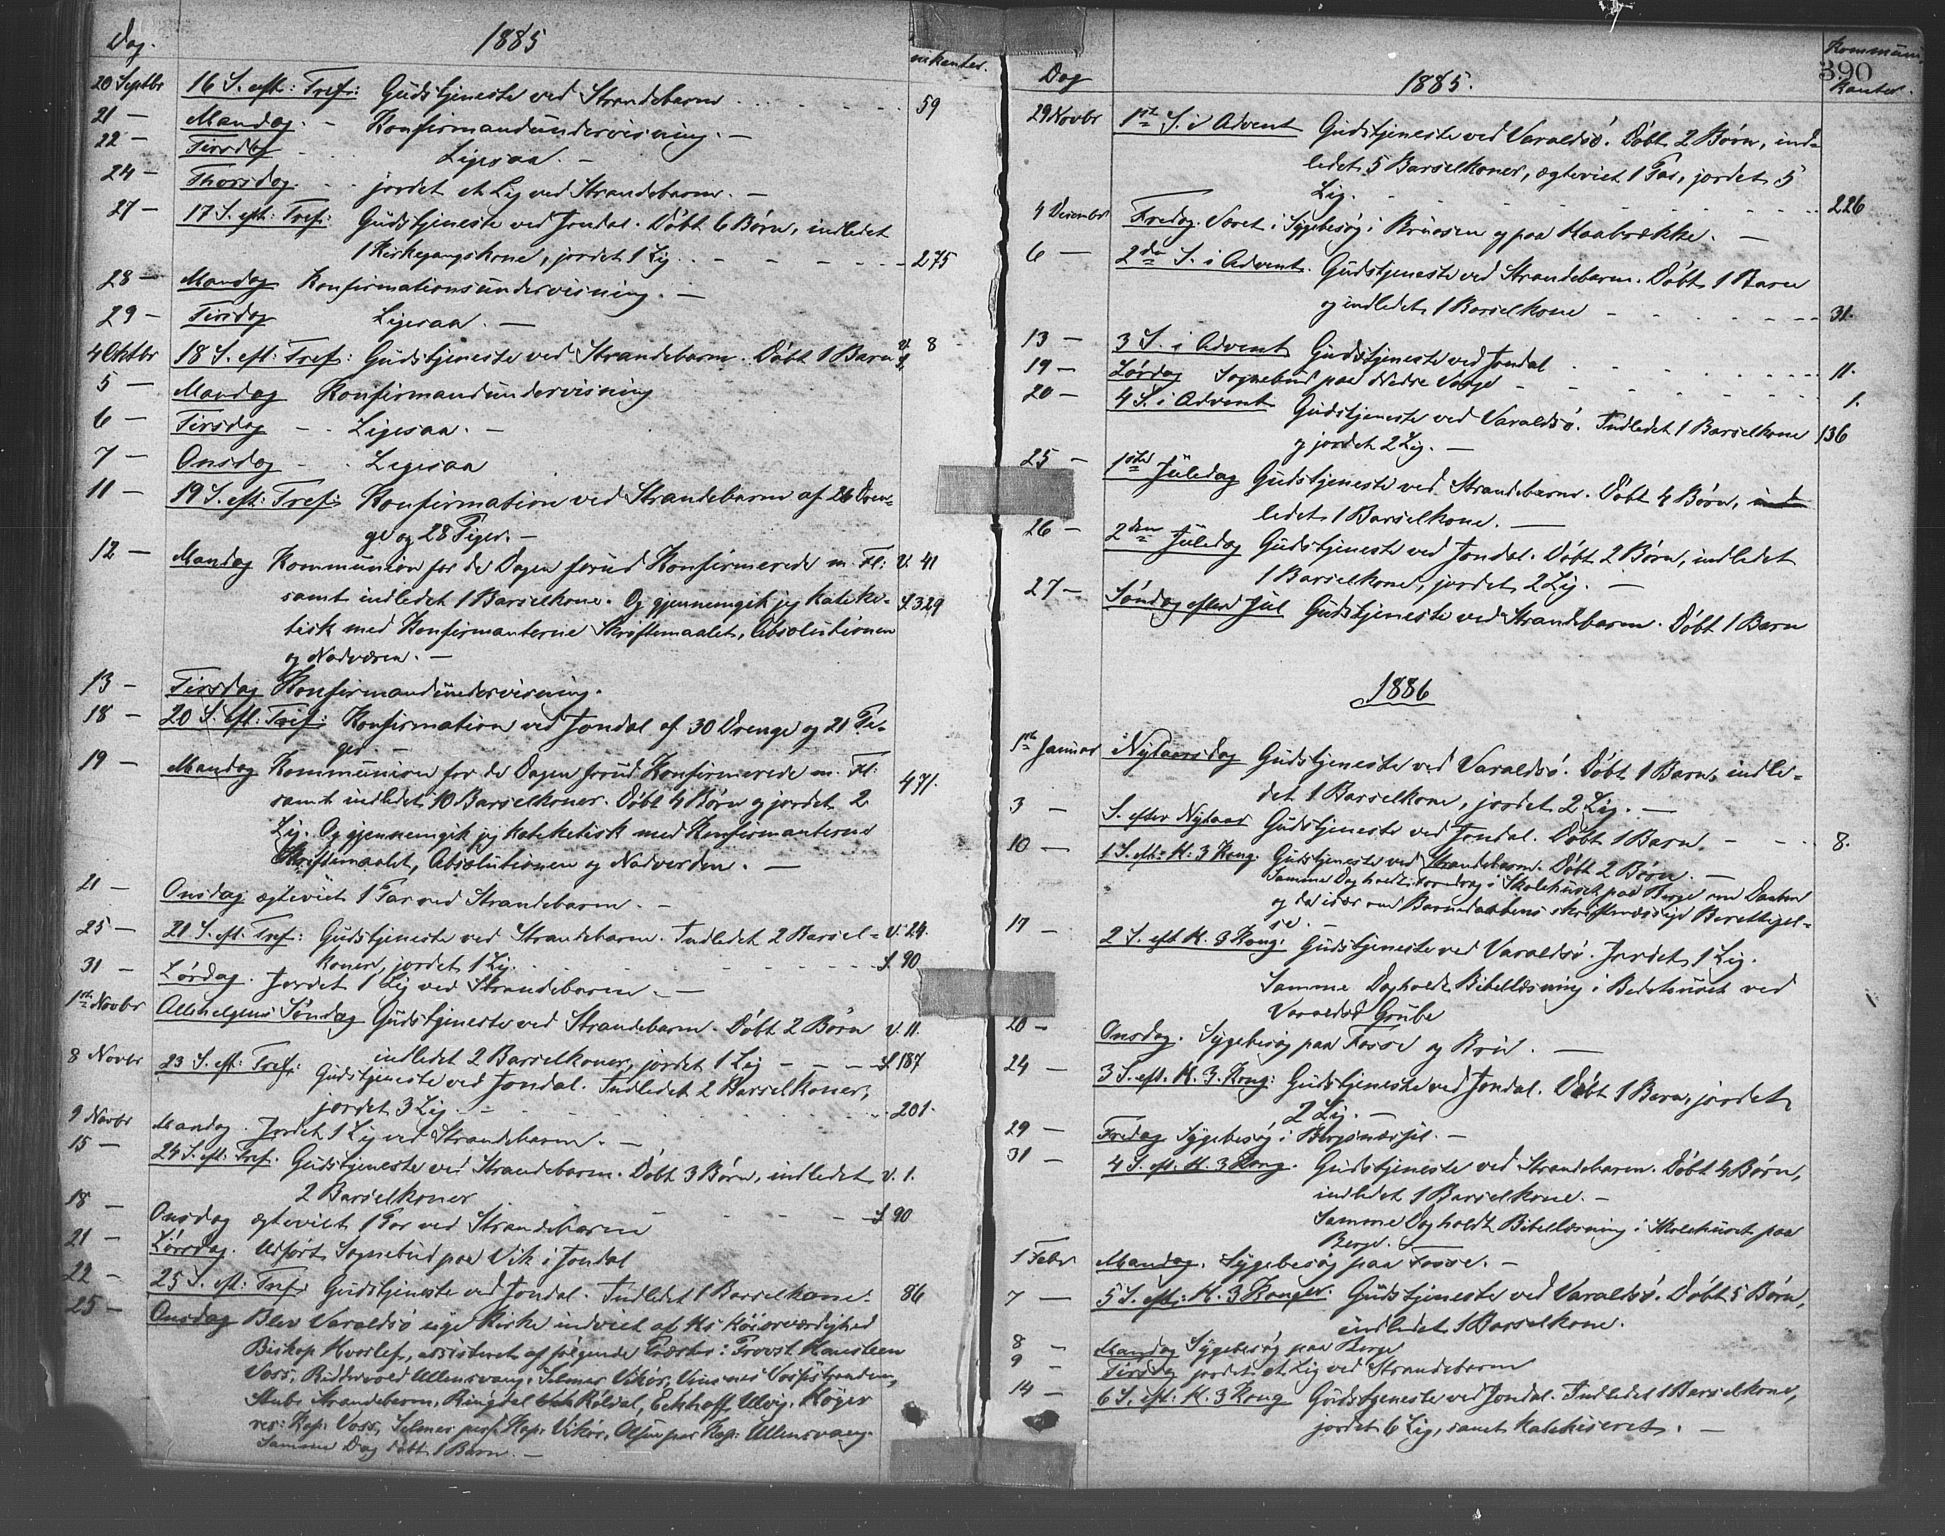 Dag. 1885 nikanter.
20 Septbr 16 S. eft: Tref: Gudstjeneste ved Strandebarm 59
21 — Mandag. - Konfirmandundervisning. —
22 — Tirsdag Ligesaa. —
24 — Thorsdag jordet et Lig ved Strandebarm. —
27 — 17 S. eft: Tref: Gudstjeneste ved Jondal. Døbt 6 Børn, indledet
1 Kirkegangskone, jordet 1 Lig 275
28 — Mandag Konfirmationsundervisning. —
29 — Tirsdag Ligesaa. —
4 Oktbr 18 S. eft: Tref: Gudstjeneste ved Strandebarm. Døbt 1 Barn 8
5 — Mandag Konfirmandundervisning
6 — Tirsdag - - Ligesaa. —
7 — Onsdag - - Ligesaa
11 — 19 S. eft: Tref: Konfirmation ved Strandebarm af 26 Dren-
ge og 28 Piger. —
12 — Mandag Kommunion for de Dagen forud Konfirmerede m. Fl: V. 41
samt indledet 1 Barselkone. Og gjennemgik jeg kateke- S. 329
tisk med Konfirmanterne Skriftemaalet, Absolutionen
og Nadveren. —
13 — Tirsdag Konfirmandundervisning.
18 — 20 S. eft: Tref: Konfirmation ved Jondal af 30 Drenge og 21 Pi-
ger —
19 — Mandag Kommunion for de Dagen forud Konfirmerede m. Fl: 471.
samt indledet 10 Barselkoner. Døbt 4 Børn og jordet 2
Lig. Og gjennemgik jeg kateketisk med Konfirmanterne
Skriftemaalet, Absolutionen og Nadverden. —
21 — Onsdag ægteviet 1 Par ved Strandebarm. —
25 — 21 S. eft: Tref: Gudstjeneste ved Strandebarm. Indledet 2 Barsel- V. 24.
koner, jordet 1 Lig. S. 90
31 — Lørdag. Jordet 1 Lig ved Strandebarm. —
1ste Novbr Allehelgens Søndag Gudstjeneste ved Strandebarm. Døbt 2 Børn V. 11.
indledet 2 Barselkoner, jordet 1 Lig S 187
8 Novbr 23 S. eft: Tref: Gudstjeneste ved Jondal. Indledet 2 Barselkoner,
jordet 3 Lig 201.
9 Novbr Mandag. Jordet 1 Lig ved Strandebarm. —
15 — 24 S. eft: Tref. Gudstjeneste ved Strandebarm. Døbt 3 Børn, indledet V. 1.
2 Barselkoner S 90
18 — Onsdag ægteviet 1 Par ved Strandebarm
21 — Lørdag. Udført Sognebud paa Vik i Jondal
22 — 25 S. eft: Tref: Gudstjeneste ved Jondal. Indledet 1 Barselkone. 86
25 — Onsdag Blev Varaldsø nye Kirke indviet af Hs Höiærværdighed
Biskop Hvoslef, assisteret af følgende Præster: Provst Hanssen
Voss, Riddervold Ullensvang, Selmer Vikør, Vinsnes Vossestranden,
Stub Strandebarm, Ringdal Röldal, Eckhoff Ulvig, Köyer
res: Kap: Voss, Selmer pers. Kap: Vikør, Olsen pers Kap: Ullensvang.
Samme Dag døbt 1 Barn. —
Dag 1885. Kommuni-
390
kanter.
29 Novbr 1ste S. i Advent Gudstjeneste ved Varaldsö. Døbt 2 Børn, ind-
ledet 5 Barselkoner, ægteviet 1 Par, jordet 5
Lig. 226
4 Decembr Fredag. Været i Sygebesøg i Bruosen og paa Haabrække. —
6 — 2den S. i Advent. Gudstjeneste ved Strandebarm. Døbt 1 Barn
og indledet 1 Barselkone 31.
13 — 3 S. i Advent Gudstjeneste ved Jondal 11.
19 — Lördag Sognebud paa Nedre Vaage 1.
20 — 4 S. i Advent Gudstjeneste ved Varaldsö. Indledet 1 Barselkone 136
og jordet 2 Lig. —
25 — 1ste Juledag Gudstjeneste ved Strandebarm. Døbt 4 Børn, ind
ledet 1 Barselkone. —
26 — 2den Juledag Gudstjeneste ved Jondal. Døbt 2 Børn, indledet
1 Barselkone, jordet 2 Lig. —
27 — Søndag efter Jul Gudstjeneste ved Strandebarm. Døbt 1 Barn
1886
1ste Januar Nytaarsdag Gudstjeneste ved Varaldsö. Døbt 1 Barn, indle-
det 1 Barselkone, jordet 2 Lig. —
3 — S. efter Nytaar Gudstjeneste ved Jondal. Døbt 1 Barn. 8.
10 — 1 S. eft: H. 3 Kong. Gudstjeneste ved Strandebarm. Døbt 2 Børn. —
Samme Dag holdt Foredrag i Skolehuset paa Berge om Daaben
og da især om Barnedaabens skriftmæssige Berettigel-
se. —
17 — 2 S. eft H. 3 Kong: Gudstjeneste ved Varaldsö. Jordet 1 Lig.
Samme Dag holdt Bibellæsning i Bedehuset ved
Varaldsö Grube
20 — Onsdag. Sygebesøg paa Fosse og Bru. —
24 — 3 S. eft. H. 3 Kong: Gudstjeneste ved Jondal. Døbt 1 Barn, jordet
2 Lig. —
29 — Fredag Sygebesøg i Bergsnæsset. —
31 — 4 S. eft. H. 3 Kong. Gudstjeneste ved Strandebarm. Døbt 4 Børn,
indledet 1 Barselkone. —
Samme Dag holdt Bibellæsning i Skolehuset paa
Berge. —
1 Febr Mandag. Sygebesøg paa Fosse. —
7 — 5 S. eft: H. 3 Konger. Gudstjeneste ved Varaldsö. Døbt 5 Børn,
indledet 1 Barselkone.
8 — Mandag Sygebesøg paa Berge
9 — Tirsdag jordet et Lig ved Strandebarm
14 — 6 S. eft. H. 3 Kong Gudstjeneste ved Jondal. Indledet 1 Barselkone,
jordet 6 Lig, samt katekiseret. —